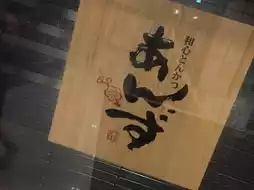 和心とんかつ
あんず